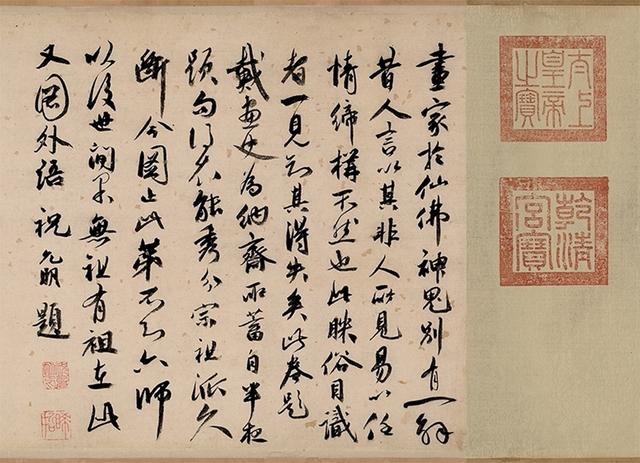 太上
皇帝
之寶
乾清
宮寶
畫家於仙佛神鬼別有一解
昔人言以其非人所見易以任
情締構不然也此眯俗目識
者一見知其得失矣此卷題
戴畫廷為納齋所蓄自半夜
題句得不能秀分宗祖派久
斷今圖止此第不知六師
以後世間果無祖有祖在此
又圖外語祝允明題